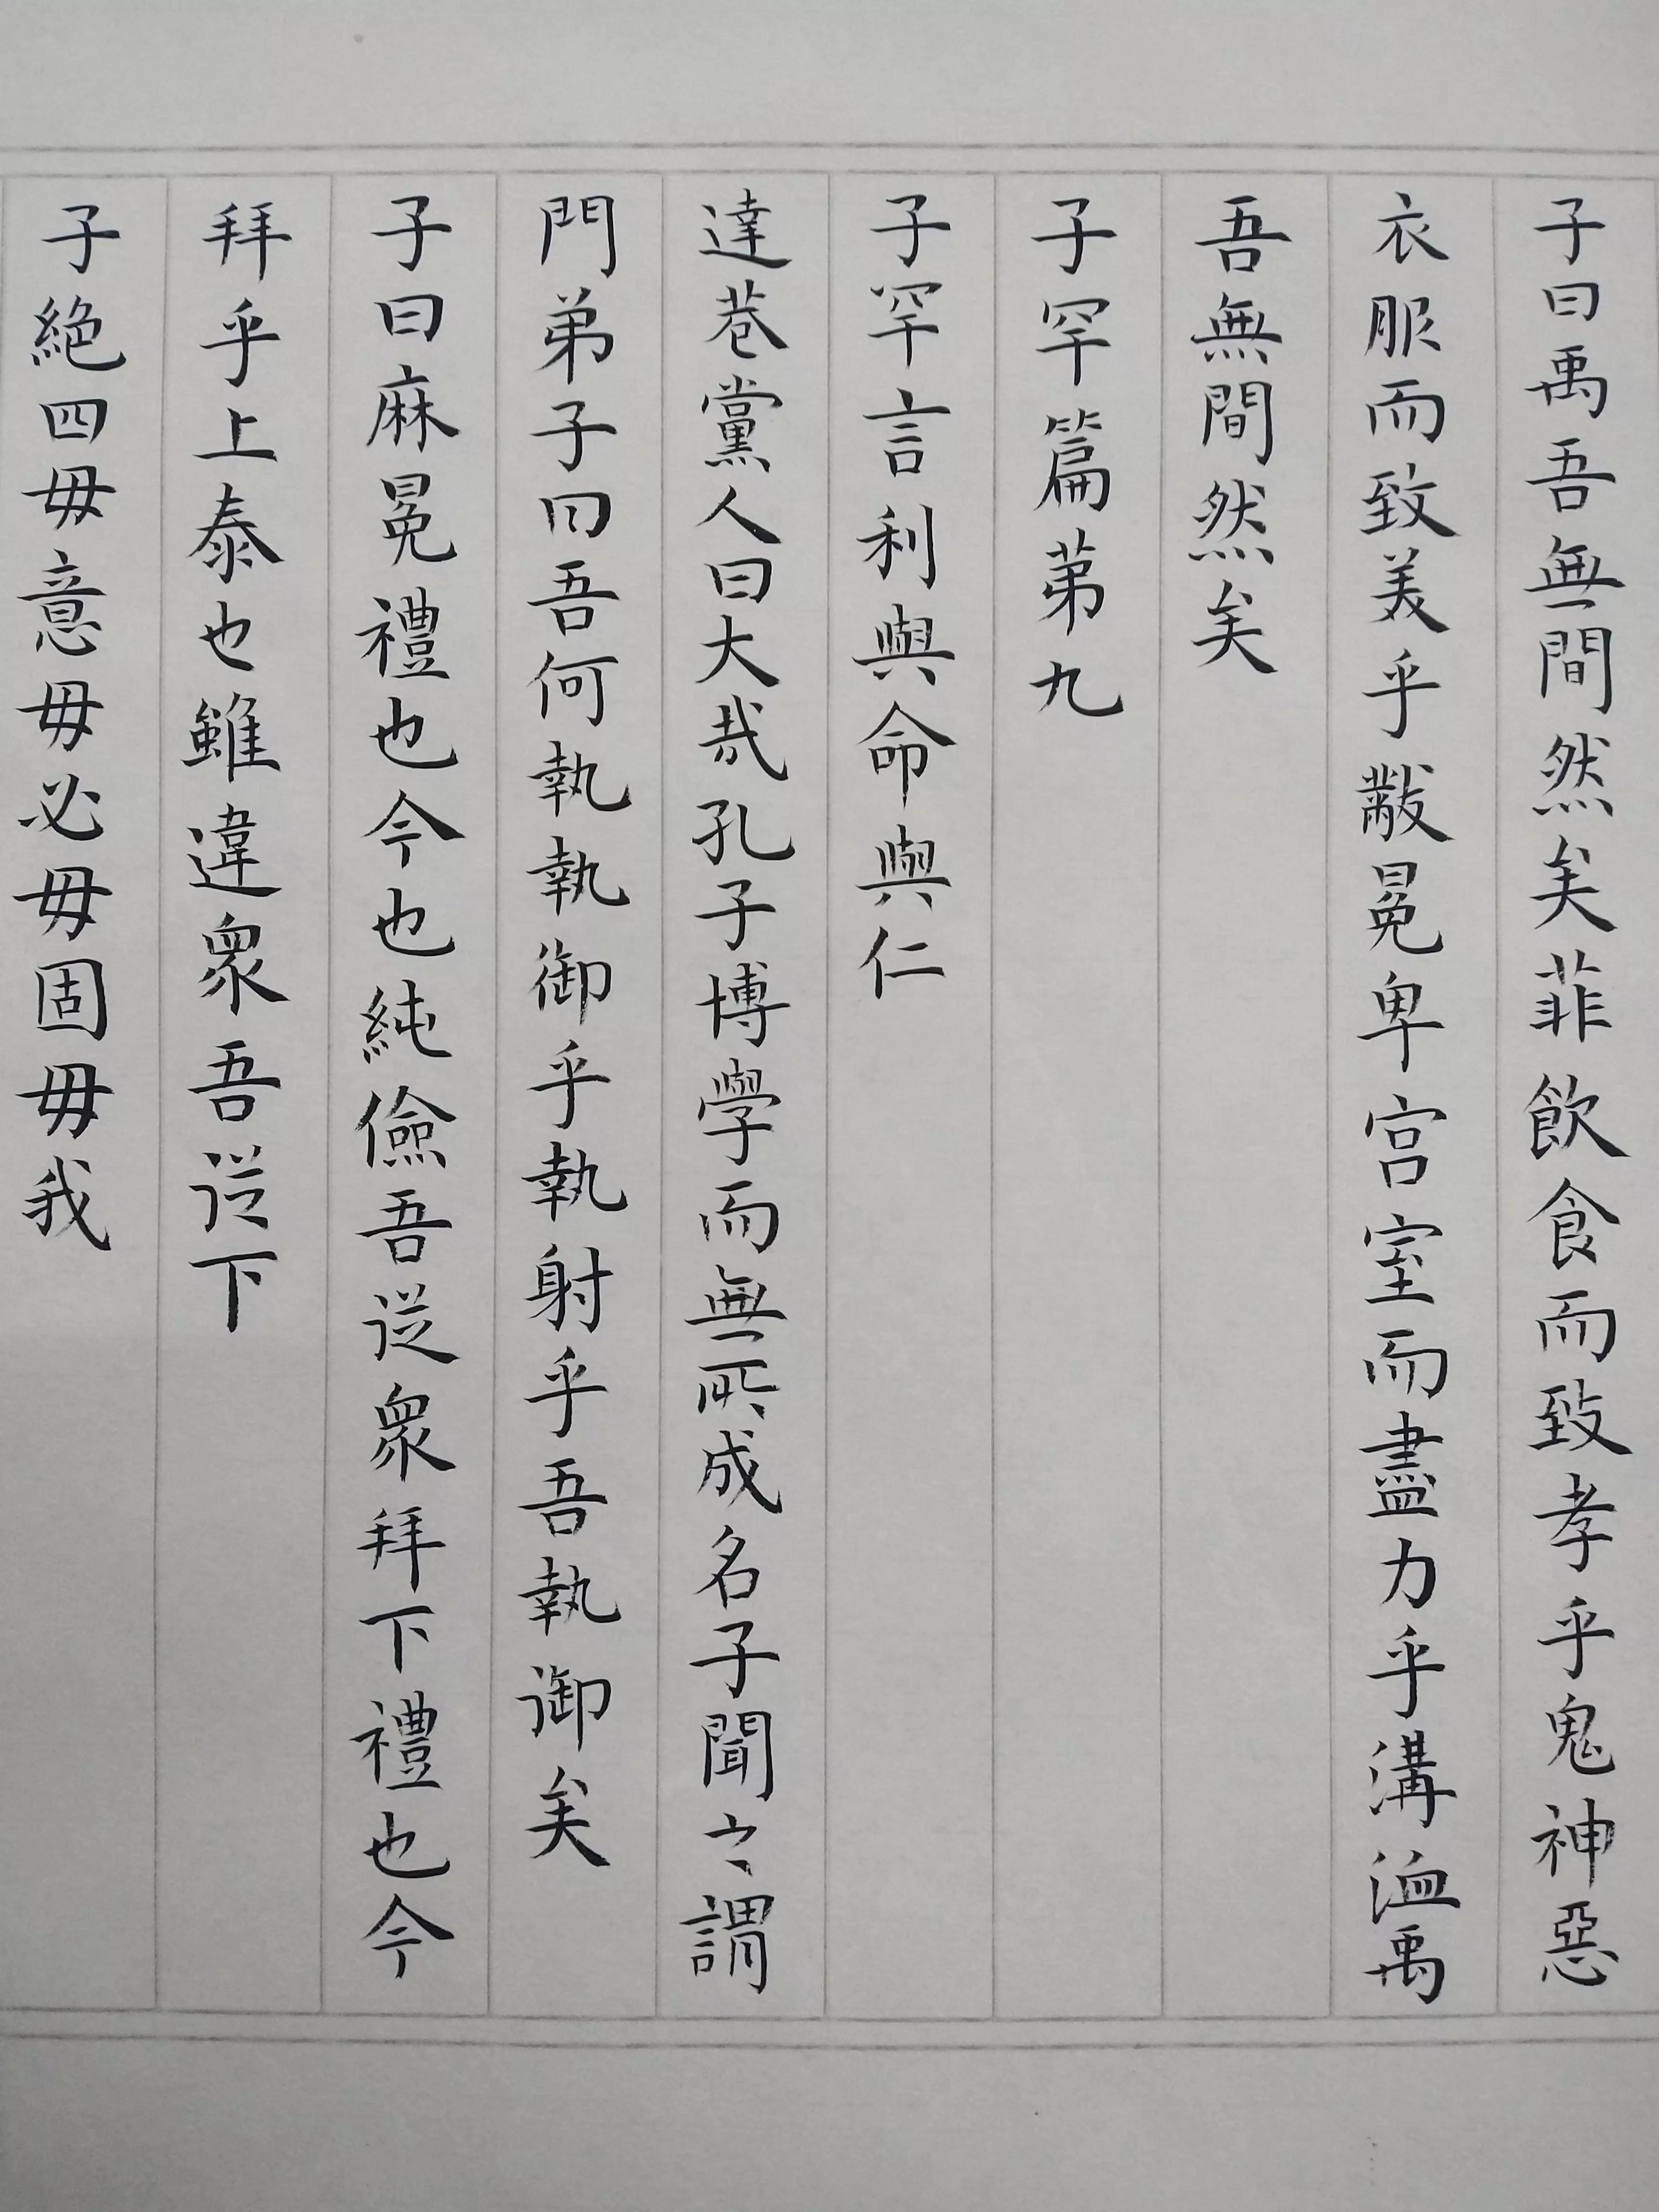 子曰禹吾無間然矣菲飲食而致孝乎鬼神惡
衣服而致美乎黻冕卑宮室而盡力乎溝洫禹
吾無間然矣
子罕篇第九
子罕言利與命與仁
達巷黨人曰大哉孔子博學而無所成名子聞之謂
門弟子曰吾何執執御乎執射乎吾執御矣
子曰麻冕禮也今也純儉吾從眾拜下禮也今
拜乎上泰也雖違眾吾從下
子絕四毋意毋必毋固毋我